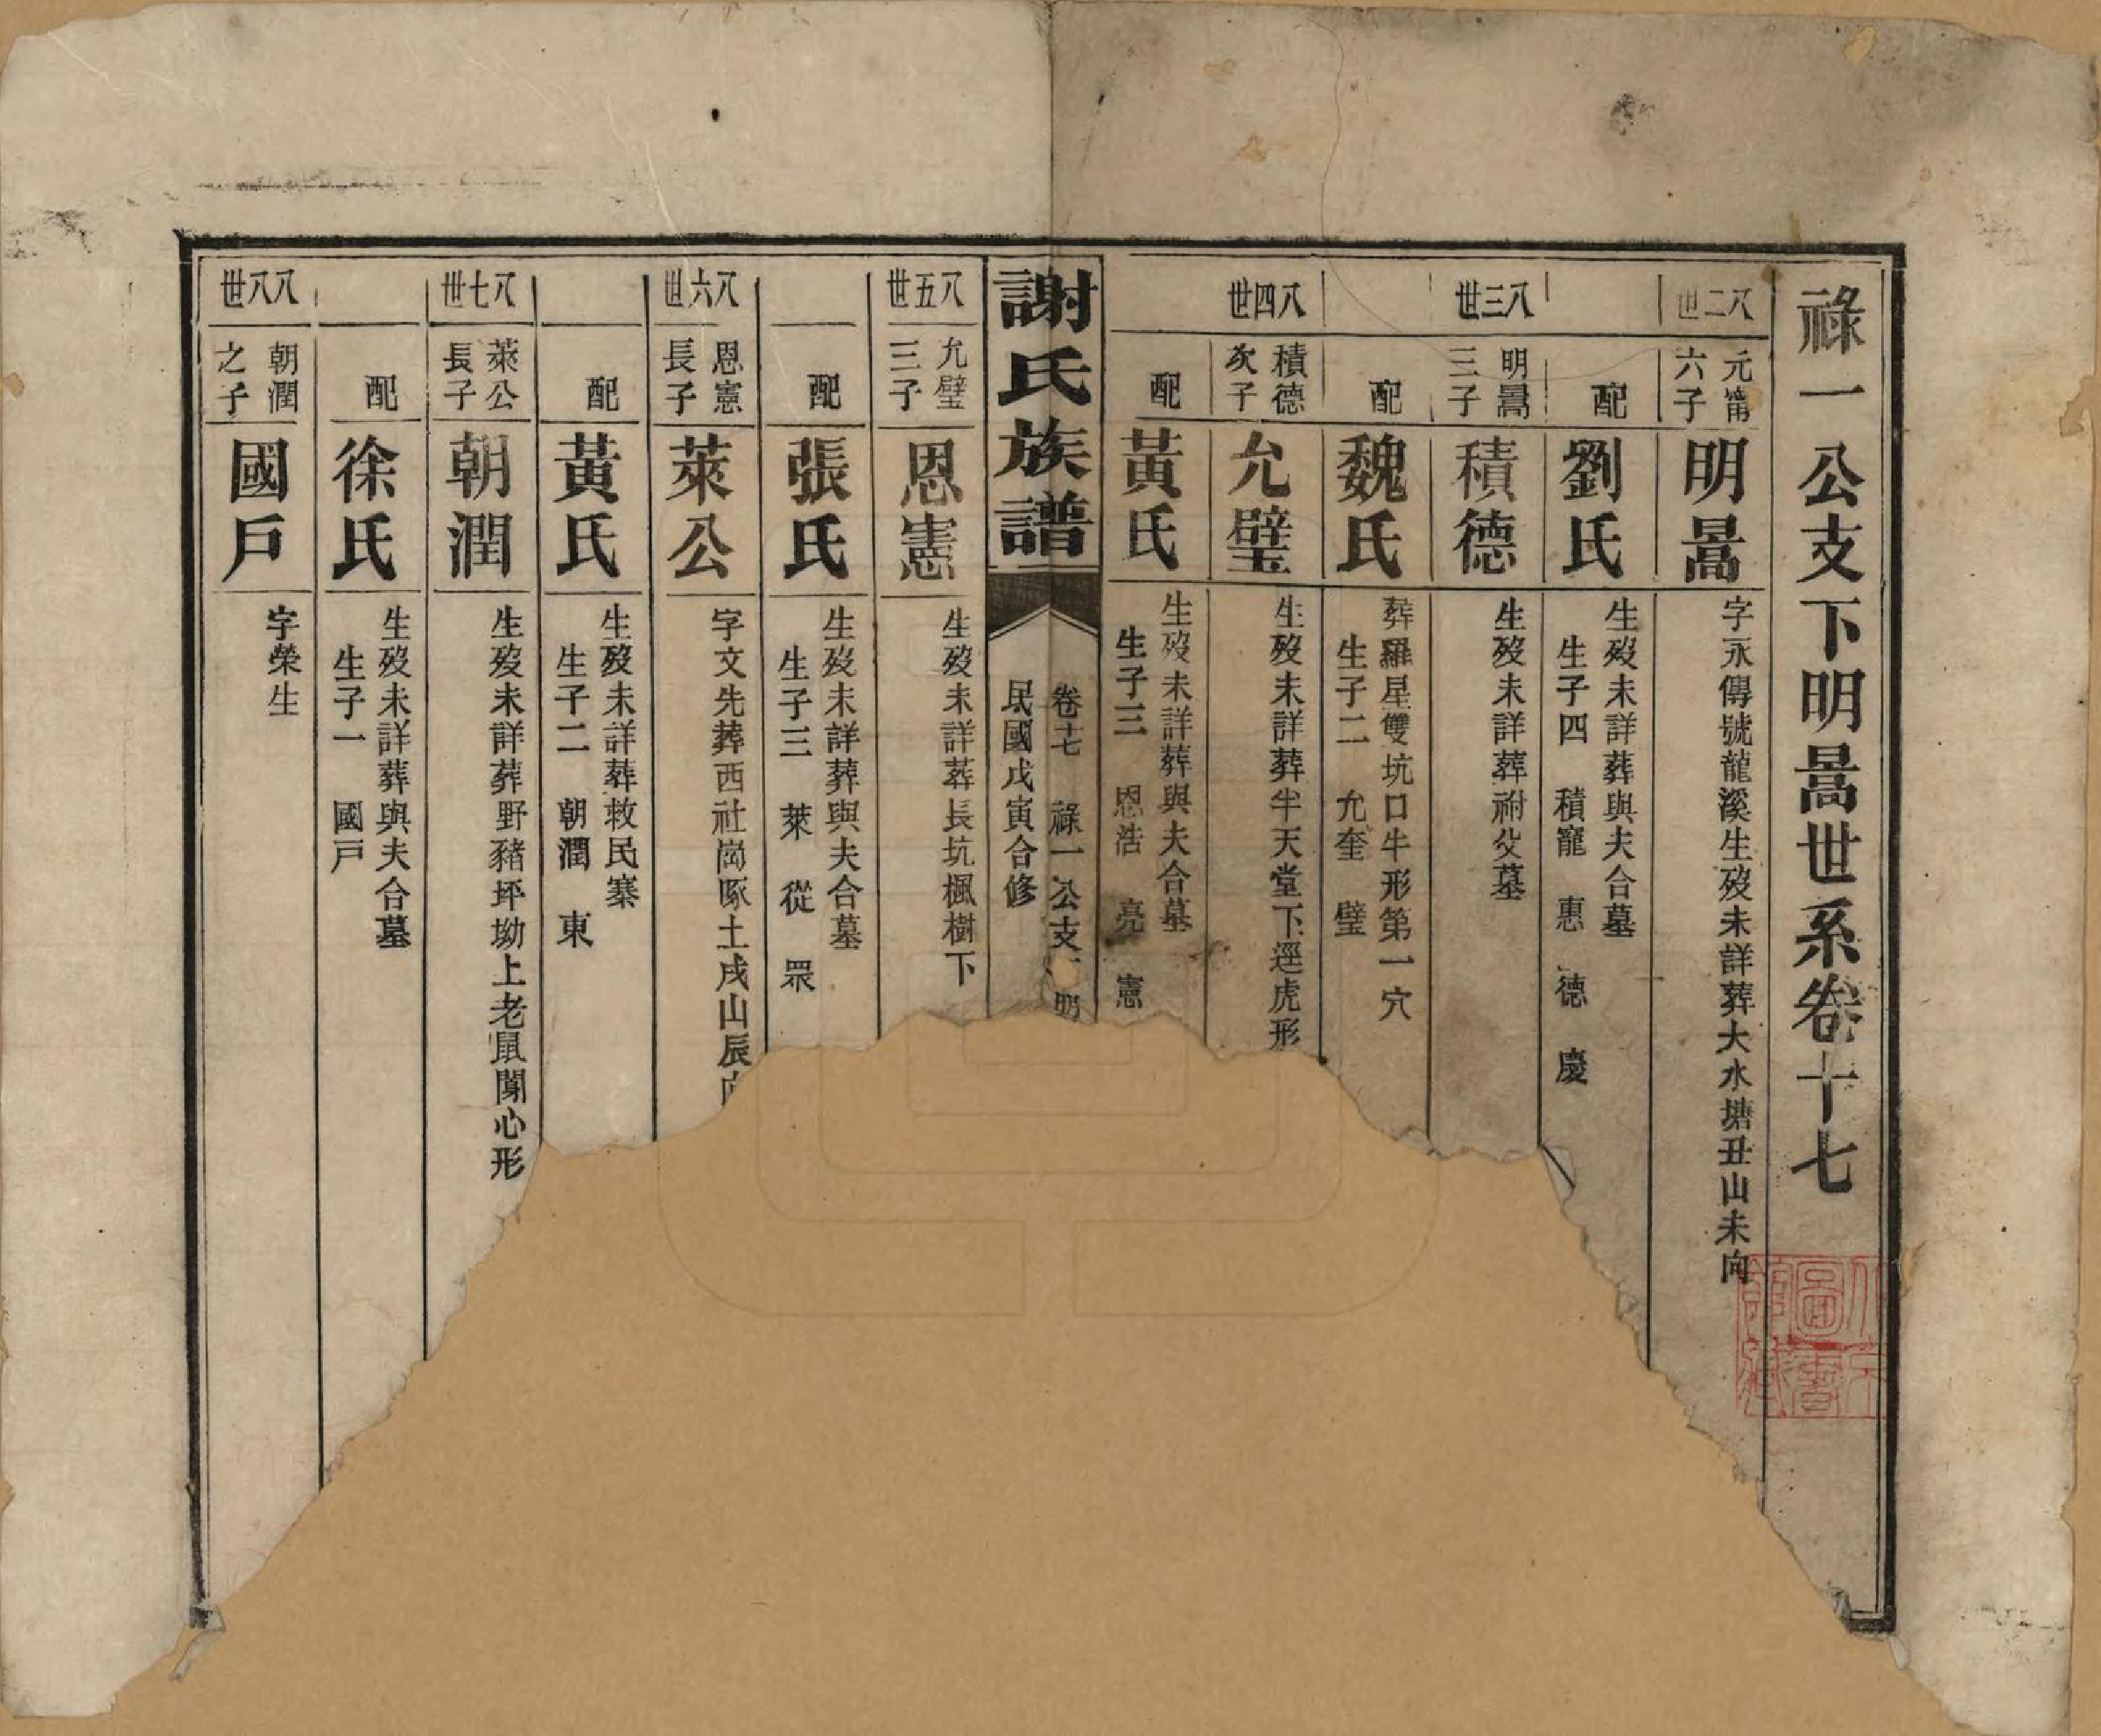 祿一公支下明暠世系卷十七
八二世
元甯
六子
明暠
字永傳號龍溪生歿未詳葬大水塘丑山未向
配
劉氏
生歿未詳葬與夫合墓
生子四 積寵 惠 德 慶
八三世
明暠
三子
積德
生歿未詳葬祔父墓
配
魏氏
葬羅星雙坑口牛形第一穴
生子二 允奎 璧
八四世
積德
次子
允璧
生歿未詳葬半天堂下逕虎形
配
黃氏
生歿未詳葬與夫合墓
生子三 恩浩 亮 憲
謝氏族譜
卷十七 祿一公支 明
民國戊寅合修
八五世
允璧
三子
恩憲
生歿未詳葬長坑楓樹下
配
張氏
生歿未詳葬與夫合墓
生子三 萊 從 眾
八六世
恩憲
長子
萊公
字文先葬西社崗啄土戌山辰向
配
黃氏
生歿未詳葬救民寨
生子二 朝潤 東
八七世
萊公
長子
朝潤
生歿未詳葬野豬坪坳上老鼠閙心形
配
徐氏
生歿未詳葬與夫合墓
生子一 國戸
八八世
朝潤
之子
國戸
字榮生